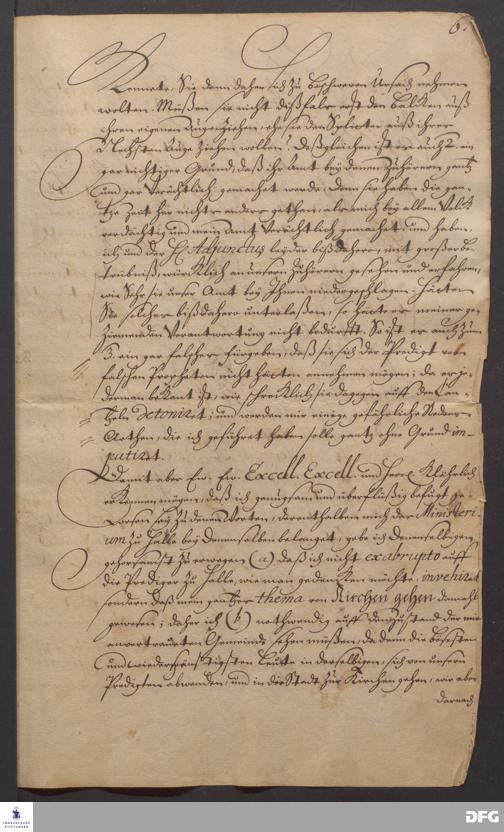 6.
Kennete, Sie denn daher sich zu beschweren Ursach nehmen
wolten. Müßen sie nicht dißfals erst den Balken auß
ihren eigenen Augen ziehen, ehe sie den Splitter auß ihres
Nechsten Auge ziehen wollen? Deßgleichen ist es auch 2. ein
gar nichtiger Grund, daß ihr Amt bey denen Zuhörern gantz
und gar verächtlich gemachet werde. Denn sie haben die gan-
tze Zeit her nichts anders gethan, als mich bey allem Volk
verdächtig und mein Amt verächtlich gemachet: und haben
ich und der H. Adjunctus leyder bißdahero, mit großer be-
trübniß, würklich an unsern Zuhörern gesehen und erfahren,
wie sehr sie unser Amt bey Ihnen niedergeschlagen. Hätten
Sie solches bißdahero unterlaßen, so hätte es meiner ge-
ziemenden Verantwortung nicht bedurfft. So ist es auch zum
3. ein gar falsches fürgeben, daß sie sich der Predigt von
falschen Propheten nicht hätten annehmen mögen; da es je-
derman bekant ist, wie schrecklich sie dagegen auff den Can-
tzeln detoniret; und werden mir einige gefährliche Redens
Arthen, die ich geführet haben solle gantz ohne Grund im-
putiret.
Damit aber Ew. Ew. Excell. Excell. und Herrl. Klährlich
erkennen mögen, daß ich genugsam und überflüßig befügt ge-
wesen sey zu denen Worten, derenthalben mich das Ministeri-
um zu Halle bey denenselben belanget, gebe ich denenselbigen
gehorsamst zu erwegen (a) daß ich nicht ex abrupto auff
die Prediger zu Halle, wie man gedencken möchte, invehiret
sondern daß mein gantzes thema von Kirchen gehen damahls
gewesen; daher ich (b) nothwendig auff den Zustand der mir
anvertrauten Gemeinde sehen müßen, da denn die bösesten
und wiederspenstigsten Leute in derselbigen, sich von unsern
Predigten abwenden, und in die Stadt zur Kirchen gehen, wie aber
darnach
FRANCKESCHE STIFTUNGEN
DFG